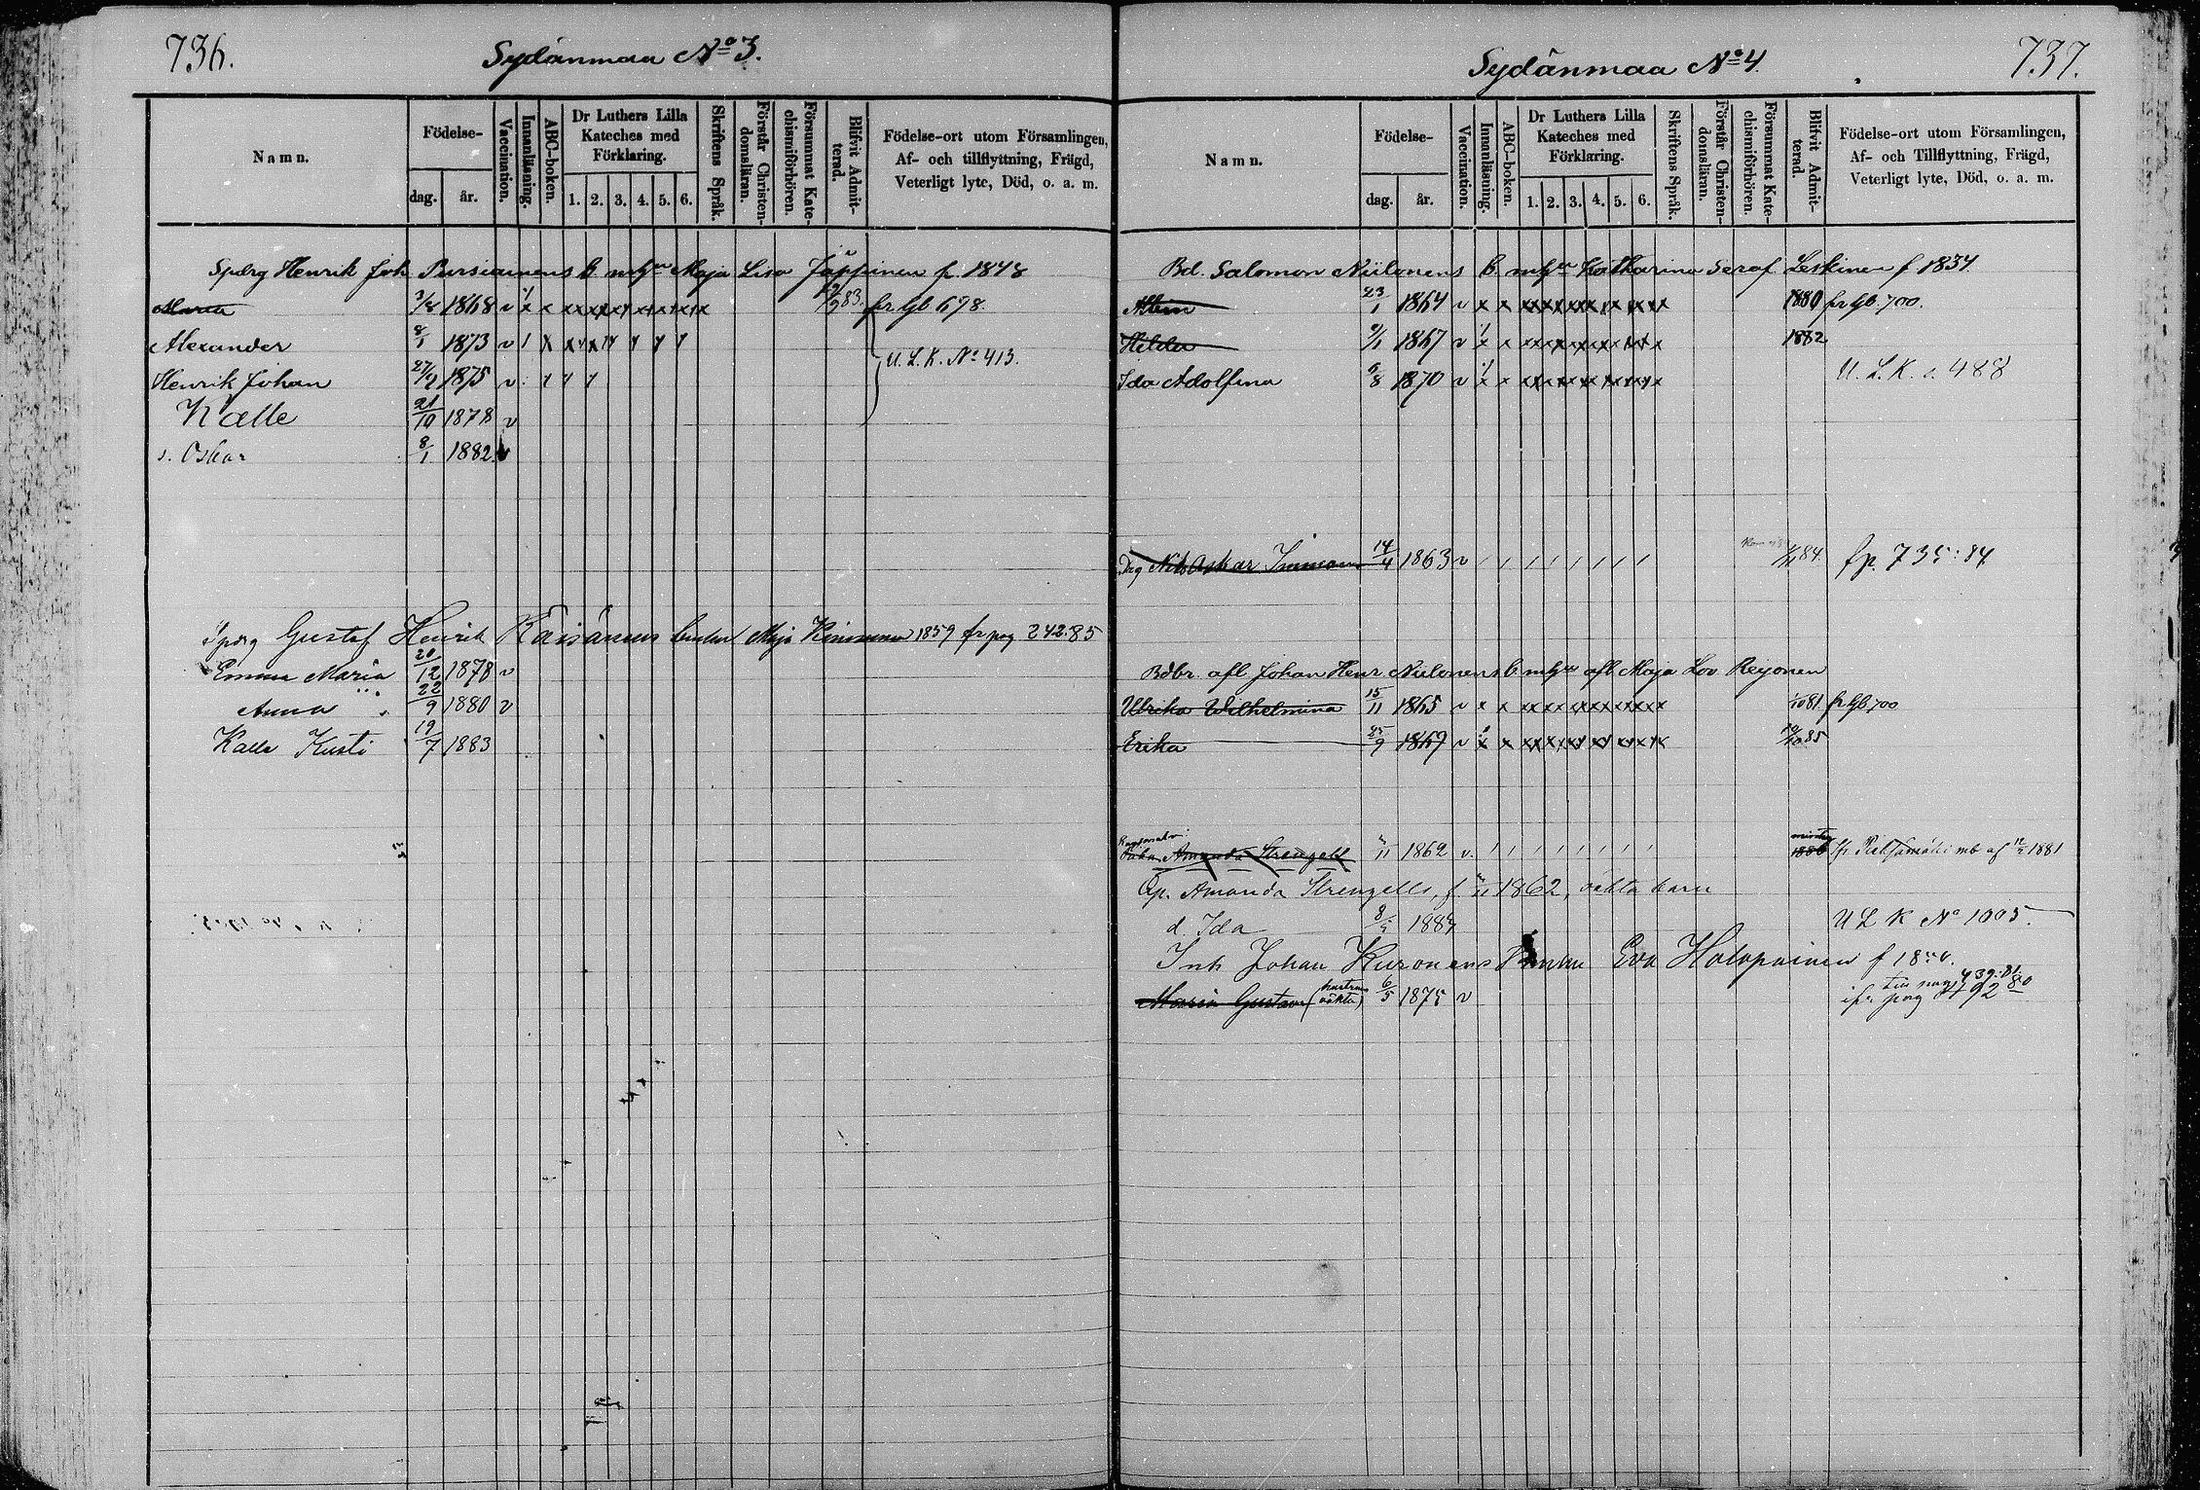 736.
Sydänmaa No 3.
Namn.
Födelse-
dag.
år.
Vaccination.
Innanläsning.
ABC-boken.
Dr Luthers Lilla
Kateches med
Förklaring.
1. 2. 3. 4. 5. 6.
Skriftens Språk.
Förstår Christen-
domsläran.
Försummat Kate-
chismiförhören.
Blifvit Admit-
terad.
Födelse-ort utom Församlingen,
Af- och tillflyttning, Frägd,
Veterligt lyte, Död, o. a. m.
Henrik Joh Pursiainens b. Maja Lisa Jäppinen f. 1848
Maria 1868 v x x x x x x x x x 83. fr lb 678.
Alexander 8/1 1873 v
U. L. K. No 413.
Henrik Johan 27/9 1875 v
Kalle 21/10 1878 v
s. Oskar 8/1 1882 v
Gustaf Henrik Räisänens Maja 1859 fr pag 242.85
Emma Maria 20/12 1878 v
Anna 22/9 1880 v
Kalle Kusti 19/7 1883
737.
Sydänmaa No 4.
Namn.
Födelse-
dag.
år.
Vaccination.
Innanläsning.
ABC-boken.
Dr Luthers Lilla
Kateches med
Förklaring.
1. 2. 3. 4. 5. 6.
Skriftens Språk.
Förstår Christen-
domsläran.
Försummat Kate-
chismiförhören.
Blifvit Admit-
terad.
Födelse-ort utom Församlingen,
Af- och Tillflyttning, Frägd,
Veterligt lyte, Död, o. a. m.
Bd. Salomon Niilonens b. Katharina Seraf Leskinen f 1834
23/1 1864 v x x x x x x x x x 1880 fr lb. 700.
Hilda 9/1 1867 v x x x x x x x x x 1882
Ida Adolfina 5/8 1870 v x x x x x x x x x U. L. K. s. 488
Drg Nils Oskar 14/4 1863 v 84. fp. 735:84
Bdbr. afl Johan Henr Niilonens b afl Maja Lov Reijonen
Ulrika Wilhelmina 15/11 1865 v x x x x x x x x x 1/10 81 fr lb 700
Erika 25/9 1869 v x x x x x x x x x 85
Amanda Strengell 11 1862 v. 1880 1881
Amanda Strengells, f. 11 1862, oäkta barn
d. Ida 1884 U L K No 1005.
Inh Johan Kuronens Eva Holopainen
Maria Gustava (hustrus oäkta) 6/5 1875 v
439:81
pag 792 80